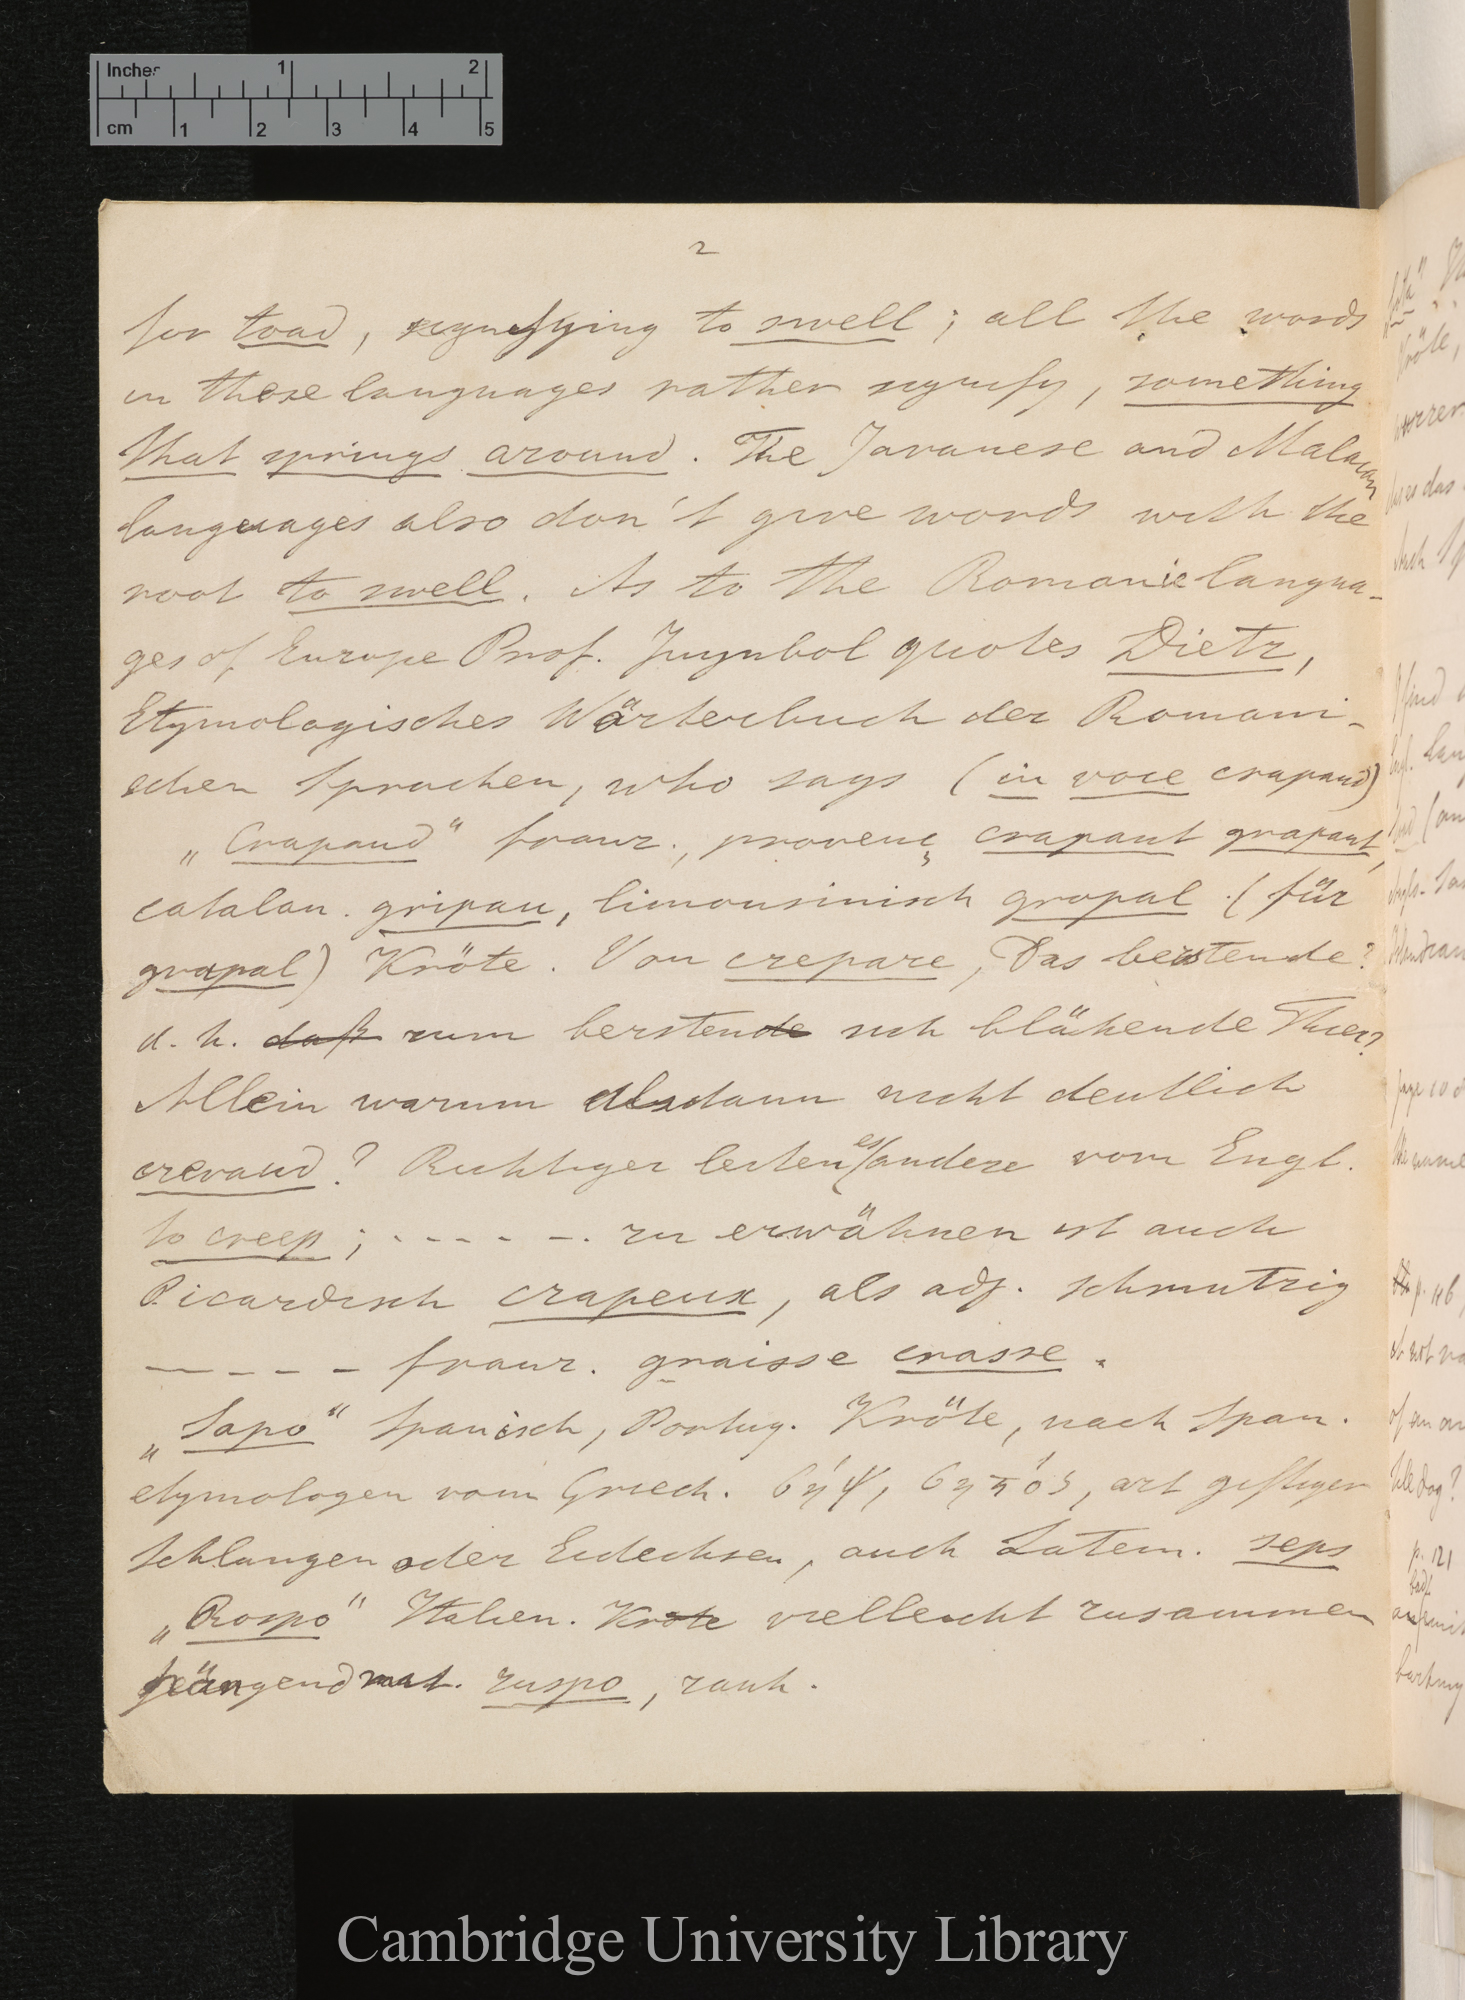 Inches 1 2
cm 1 2 3 4 5
2
for toad, signifying to swell; all the words
in these languages rather signify, something
that springs around. The Javanese and Malacan
languages also don't give words with the
root to swell. As to the Romanic langua-
ges of Europe Prof. Juynbol quotes Dietz,
Etymologisches Wörterbuch der Romani-
schen Sprachen, who says (in voce crapaud)
„Crapaud“ franz., provenç crapaut grapaut,
catalan. gripau, limousinisch gropal (für
grapal) Kröte. Von crepare, Das berstende?
d. h. daß zum bersten sich blähende Thier?
Allein warum alsdann nicht deutlich
crevaud? Richtiger leiten es andere vom Engl.
to creep; - - - - - -. zu erwähnen ist auch
Picardisch crapeux, als adj. schmutzig
— - - - franz. graisse crasse.
„Sapo“ Spanisch, Portug. Kröte, nach Span.
etymologen vom Griech. σήψ, σηπός, art giftiger
Schlangen oder Eidechsen, auch Latein. seps
„Rospo“ Italien. Kröte vielleicht zusammen
hängend mit. ruspo, rauh.
Cambridge University Library